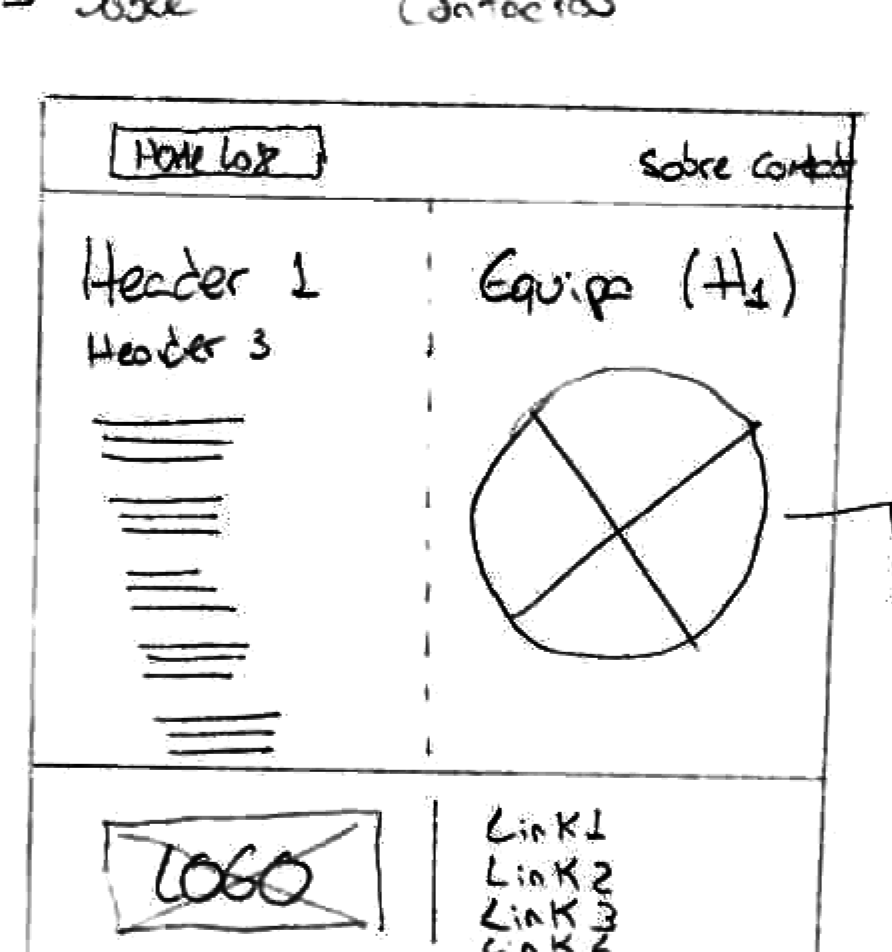 Sobre Contactos
Home Logo
Sobre Contacto
Header 1
Equipa (H1)
Header 3
LOGO
Link 1
Link 2
Link 3